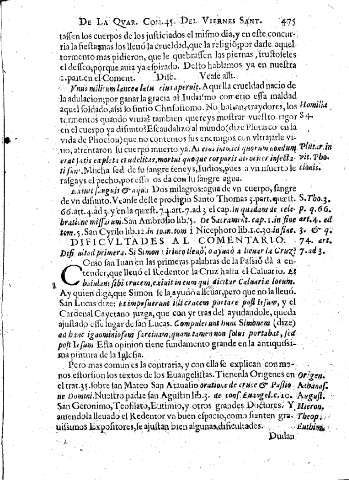 DE LA QVAR. COM. 45. DEL VIERNES SANT. 475
tassen los cuerpos de los justiciados el mismo dia, y en este concur-
ria la fiesta, mas los lleuó la crueldad, que la religió; por darle aquel
tormento mas pidieron, que le quebrassen las piernas, frustóseles
el desseo, porque aura ya espirado. Desto hablamos ya en nuestra
2. part. en el Coment. Disc. Vease allí.
Vnus militum lancea latus eius aperuit. Aquella crueldad nacio de
la adulacion; por ganar la gracia al Iudaismo cometio essa maldad
aquel soldado, assi lo sintio Chrisostomo. No bastan, traydores, los
Homilia
84.
tormentos quando viuia? tambien quereys mostrar vuestro rigor
en el cuerpo ya difunto? Escandalizò al mundo (dize
vida de Phocion) que no contentos sus enemigos con vltrajarle vi-
uo, atrentaron su cuerpo muerto ya.
Plutar. in
vit. Pho-
tionis.
Mucha sed de su sangre teneys, Iudios, pues a vn muerto le
rasgays el pecho, por essò os da con su sangre agua.
Exiuit sanguis & aqua. Dos milagros: agua de vn cuerpo, sangre
de vn difunto. Vease desse prodigio Santo Thomas 3. part. quæst.
S. Tho. 3.
66. art. 4. ad 3. y en la quæst. 74. art. 7. ad 3. el cap. in quadam de cele-
p. q. 66.
bratione missarum. San Ambrosio lib. 5. De Sacramẽt. cap. 1. in fine
art. 4. ad
tom. 5. San Cyrilo lib. 12. in Ioan. tom. 1 Nicephoro lib. 1. c. 30. in fine.
3. & q.
DIFICVLTADES AL COMENTARIO.
74. art.
Difficultad primera. Si Simon Cirineo lleuó, o ayudó a lleuar la Cruz?
7. ad 3.
Como san Iuan en las primeras palabras de la Passiõ dà a en-
tender, que lleuó el Redentor la Cruz hasta el Caluario. Et
baiulans sibi crucem, exiuit in eum qui dicitur Caluariæ locum.
Ay quien diga, que Simon se le ayudó a lleuar, pero que no la lleuó.
San Lucas dize: Et imposuerunt illi crucem portare post Iesum, y el
Cardenal Cayetano juzga, que con ye tras del ayudandole, queda
ajustado esse lugar de san Lucas. Compulerunt hunc Simonem (dize)
ad hanc ignominiosam sarcinam, quam tamen non solus portabat, sed
post Iesum. Esta opinion tiene fundamento grande en la antiquissi-
ma pintura de la Iglesia.
Pero mas comun es la contraria, y con ella se explican con me-
nos estorsion los textos de los Euangelistas. Tienenla Origenes en
Origen.
el trat. 35. sobre san Mateo San Atanasio oratione de cruce & Passio
Athanas.
ne Domini. Nuestro padre san Agustin lib. 3. de cons. Euangel. c. 10.
August.
San Geronimo, Teofilato, Eutimio, y otros grandes Doctores. Y
Hieron.
auiendola lleuado el Redentor vn buen espacio, como sienten gra-
Theop.
uissimos Expositores, se ajustan bien algunas dificultades.
Euthim.
Dudan